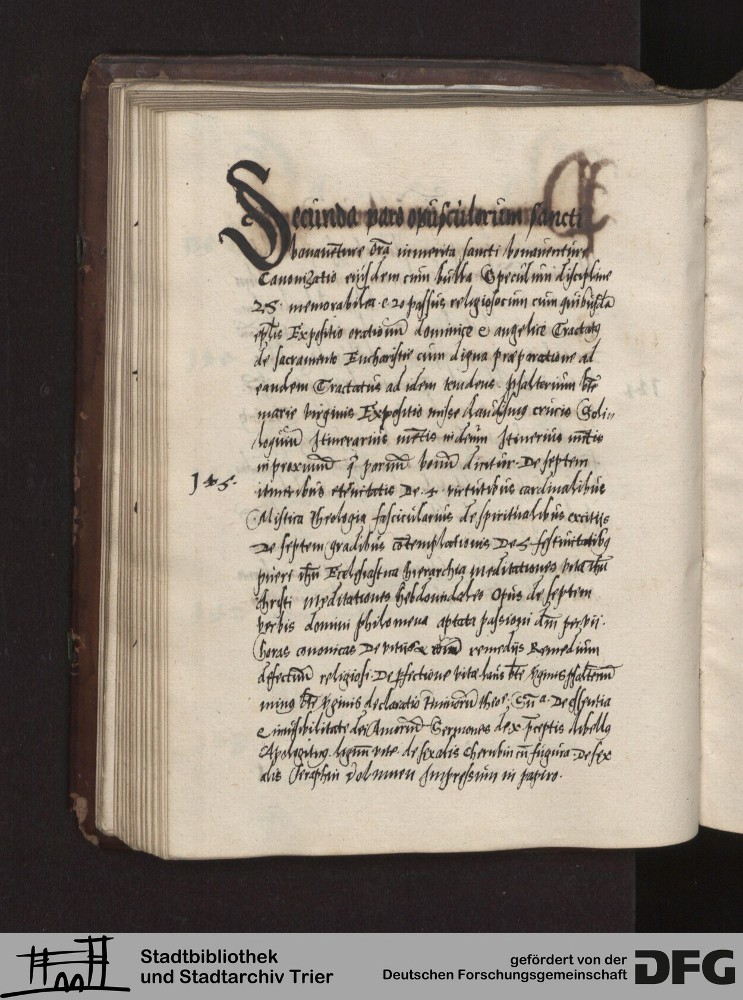 Secunda pars opusculorum sancti
bonaventure Ora inmerita sancti bonaventure
Canonizatio eiusdem cum bulla Speculum discipline
25 memorabilia e 20 passus religiosorum cum quibusda
eplis Expositio orationum dominice e angelice Tractatq
de sacramento Eucharistie cum digna præparatione ad
eandem Tractatus ad idem tendens psalterium bte
marie virginis Expositio misse laudismus crucis Soli,,
loquium Itinerarius mentis in deum Itinerius mentis
in proximum parvum bonum dicitur De septem
145. itineribus eternitatis De 4 virtutibus cardinalibus
Mistica theologia fascicularius de spiritualibus excitiis
De septem gradibus cotemplationis De 5 festivitatibq
pueri ihu Ecclesiastica hierarchia meditationes vita ihu
christi meditationes hebdomadales Opus de septem
verbis domini philomena aptata passioni dni per vii.
horas canonicas De vitiis remediis Remedium
defectuum religiosi De pfectione vite laus bte vginis psalterium
minus bte vginis declaratio tminorum theoe. Suma. De essentia
e invisibilitate dei Amorum Sermones de x pceptis libellq
Apologeticq. lignum vite. de sex alis cherubin cu figura. De sex
alis Seraphin Volumen Impressum in papiro.
Stadtbibliothek
und Stadtarchiv Trier
gefördert von der
Deutschen Forschungsgemeinschaft
DFG